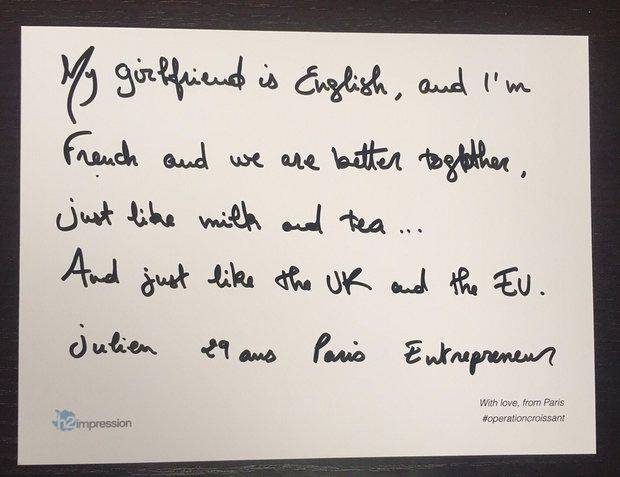 My girlfriend is English, and I'm
French and we are better together,
just like milk and tea...
And just like the UK and the EU.
Julien 29 ans Paris Entrepreneur
With love, from Paris
#operationcroissant
h2impression